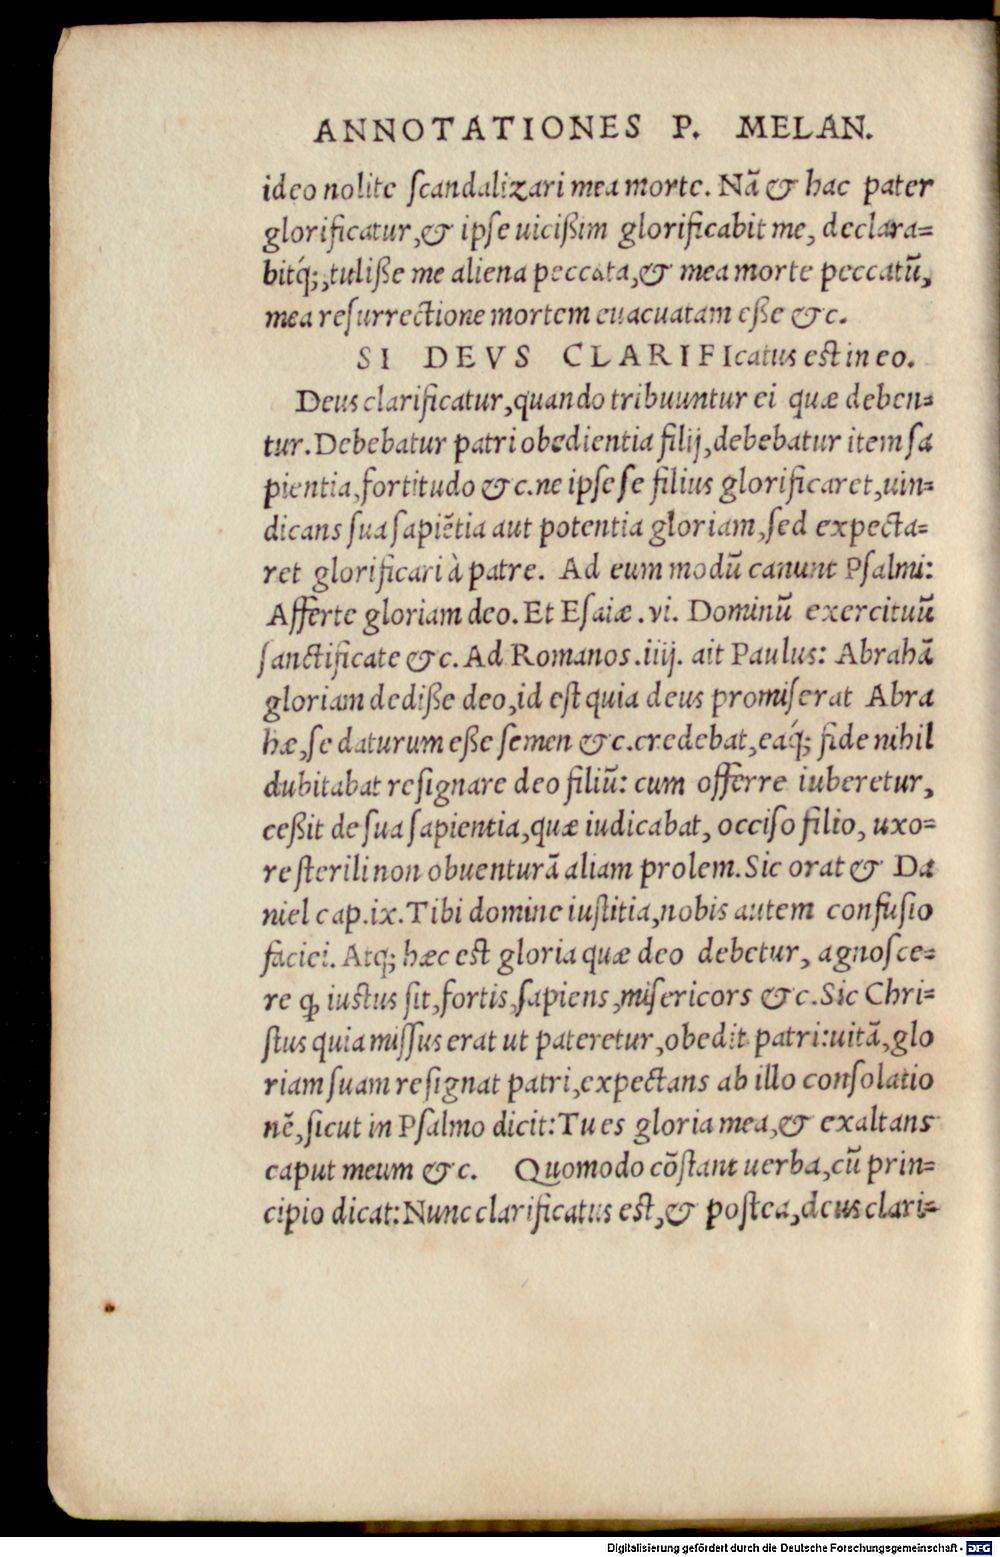 ANNOTATIONES P. MELAN.
ideo nolite ſcandalizari mea morte. Nã & hac pater
glorificatur,& ipſe uicißim glorificabit me, declara=
bitq́;,tuliße me aliena peccata,& mea morte peccatũ,
mea reſurrectione mortem euacuatam eße &c.
SI DEVS CLARIFIcatus est in eo.
Deus clarificatur,quando tribuuntur ei quæ deben=
tur. Debebatur patri obedientia filij,debebatur item ſa
pientia,fortitudo &c.ne ipſe ſe filius glorificaret,uin=
dicans ſua ſapiẽtia aut potentia gloriam,ſed expecta=
ret glorificari à patre. Ad eum modũ canunt Pſalmi:
Afferte gloriam deo. Et Eſaiæ .vi. Dominũ exercituũ
ſanctificate &c. Ad Romanos .iiij. ait Paulus: Abrahã
gloriam dediße deo,id eſt quia deus promiſerat Abra
hæ,ſe daturum eße ſemen &c.credebat,eaq́; fide nihil
dubitabat reſignare deo filiũ: cum offerre iuberetur,
ceßit de ſua ſapientia,quæ iudicabat, occiſo filio, uxo=
re ſterili non obuenturã aliam prolem. Sic orat & Da
niel cap.ix. Tibi domine iuſtitia,nobis autem confuſio
faciei. Atq; hæc eſt gloria quæ deo debetur, agnoſce=
re ꝙ iustus ſit,fortis,ſapiens,miſericors &c. Sic Chri=
ſtus quia miſſus erat ut pateretur,obedit patri:uitã,glo
riam ſuam reſignat patri,expectans ab illo conſolatio
nẽ,ſicut in Pſalmo dicit: Tu es gloria mea,& exaltans
caput meum &c. Quomodo cõſtant uerba,cũ prin=
cipio dicat: Nunc clarificatus eſt,& poſtea,deus clari=
Digitalisierung gefördert durch die Deutsche Forschungsgemeinschaft - DFG